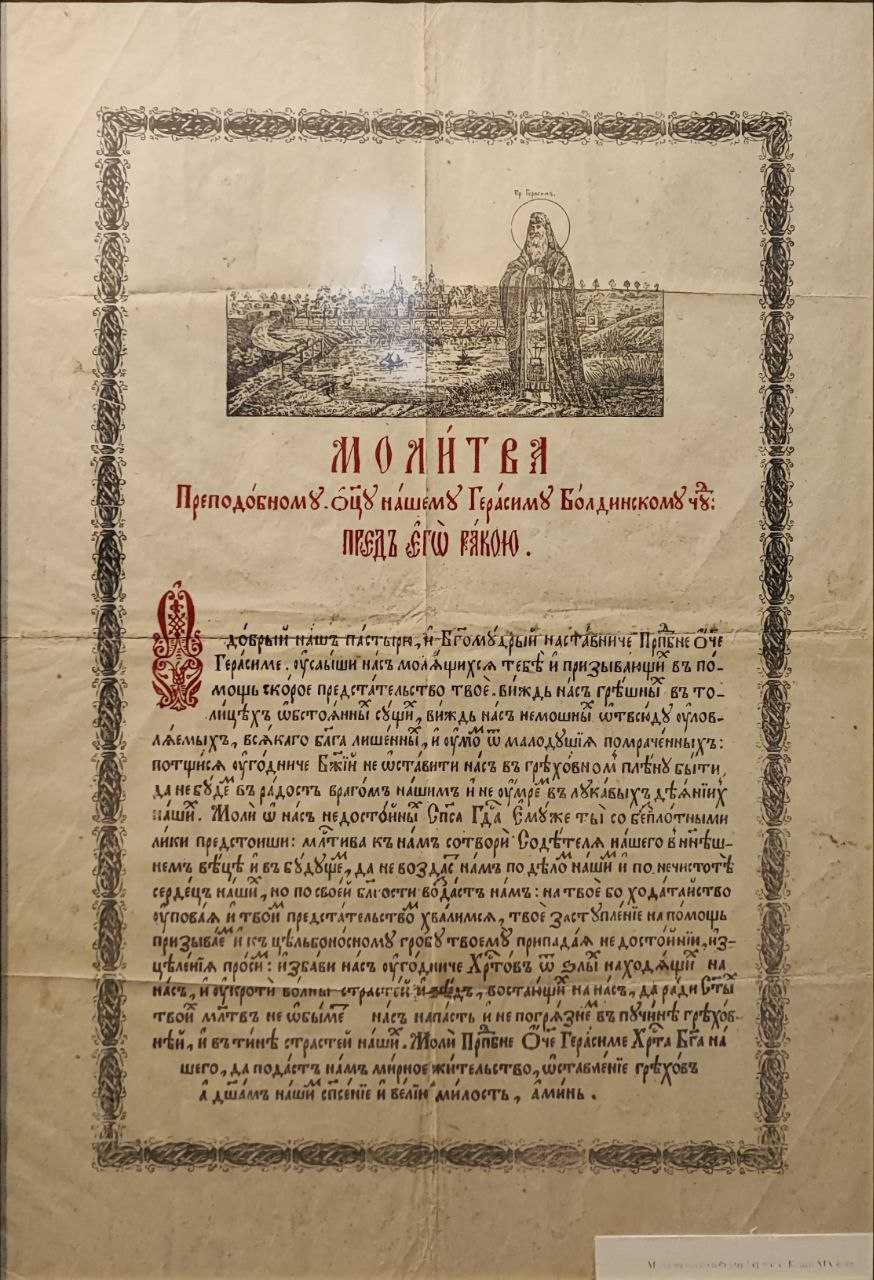 Пр. Герасимъ.
МОЛИ́ТВА
Преподо́бному О҆ц҃у на́шему Гера́симу Бо́лдинскому чꙋⷣ:
ПРЕДЪ Е҆ГѠ̀ РА́КОЮ.
Ѽ до́брый на́шъ па́стырю, и҆ Бг҃ому́дрый наста́вниче Прпⷣбне Ѻ҆́ч҃е
Гера́симе. ᲂу҆слы́ши на́съ моля́щихся тебѣ̀ и҆ призыва́ющиⷯ въ по́-
мощь ско́рое предста́тельство твоѐ. ви́ждь на́съ грѣ́шныⷯ въ то-
ли́цѣхъ ѡ҆бстоя́нныⷯ су́щиⷯ, ви́ждь на́съ немощныⷯ ѿвсю́ду ᲂу҆лов-
ля́емыхъ, вся́каго бл҃га лише́нныⷯ, и҆ ᲂу҆мо́ⷨ ѿ малоду́шїя помраче́нныхъ:
потщи́ся ᲂу҆го́дниче Бж҃їй не ѡ҆ста́вити на́съ въ грѣхо́вноⷨ плѣ́ну бы́ти,
да не бу́деⷨ въ ра́дость враго́мъ на́шимъ и҆ не ᲂу҆́мреⷨ въ лука́выхъ дѣя́нїиⷯ
на́шиⷯ. Молѝ ѡ҆ на́съ недосто́йныⷯ Сп҃са Гдⷭ҇а Є҆му́же ты̀ со беспло́тными
ли́ки предстои́ши: млⷭ҇тива къ на́мъ сотворѝ Содѣ́теля на́шего в ны́нѣш-
немъ вѣ́цѣ и҆ въ бу́дущеⷨ, да не возда́стъ на́мъ по дѣло́ⷨ на́шиⷨ и҆ по нечистотѣ̀
серде́цъ на́шиⷯ, но по свое́й блⷢ҇ости возда́стъ на́мъ: на твоѐ бо хода́тайство
ᲂу҆пова́я и҆ твои́ⷨ предста́тельствоⷨ хва́лимся, твоѐ заступле́нїе на по́мощь
призыва́еⷨ и҆ къ цѣльбоно́сному гро́бу твоему̀ припа́дая недосто́йнїи, и҆з-
цѣле́нїя про́сиⷨ: и҆зба́ви на́съ ᲂу҆го́дниче Хрⷭ҇то́въ ѿ ѕлы́ⷯ находя́щиⷯ на
на́съ, и҆ ᲂу҆кротѝ во́лны страсте́й и҆ бѣ́дъ, востаю́щиⷯ на на́съ, да ра́ди Ст҃ы́ⷯ
твои́ⷯ мл҃твъ не ѡ҆бы́меⷮ на́съ напа́сть и҆ не погря́знеⷨ въ пучи́нѣ грѣхо́в-
нѣй, и҆ въ ти́нѣ страсте́й на́шиⷯ. Молѝ Прпⷣбне Ѻ҆́ч҃е Гера́симе Хрⷭ҇та̀ Бг҃а на́-
шего, да пода́стъ на́мъ ми́рное жи́тельство, ѡ҆ставле́нїе грѣхо́въ
а҆ дш҃а́мъ на́шиⷨ сп҃се́нїе и҆ ве́лїю ми́лость, а҆ми́нь.